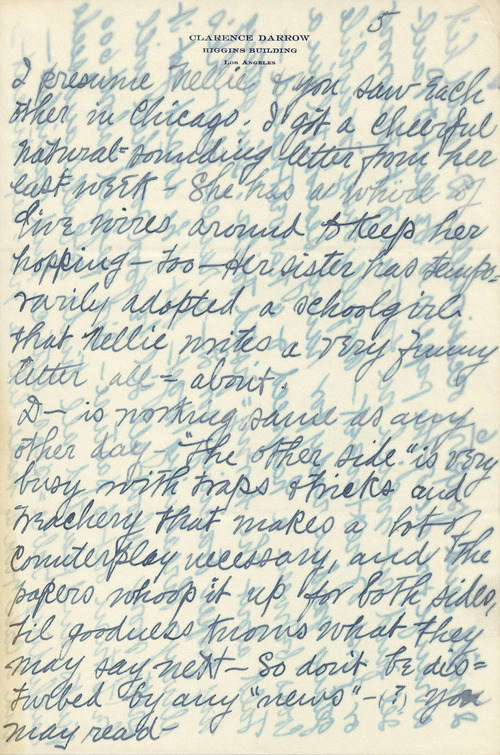 5
CLARENCE DARROW
HIGGINS BUILDING
LOS ANGELES
I presume Nellie & you saw each
other in Chicago. I got a cheerful
natural-sounding letter from her
last week - She has a whirl of
live wires around to keep her
hopping - too - Her sister has tempo-
rarily adopted a schoolgirl
that Nellie writes a very funny
letter all - about.
D- is working same as any
other day - "The other side" is very
busy with traps & tricks and
treachery that makes a lot of
counterplay necessary, and the
papers whoop it up for both sides,
til goodness knows what they
may say next - So don't be dis=
turbed by any "news" - (?) you
may read -